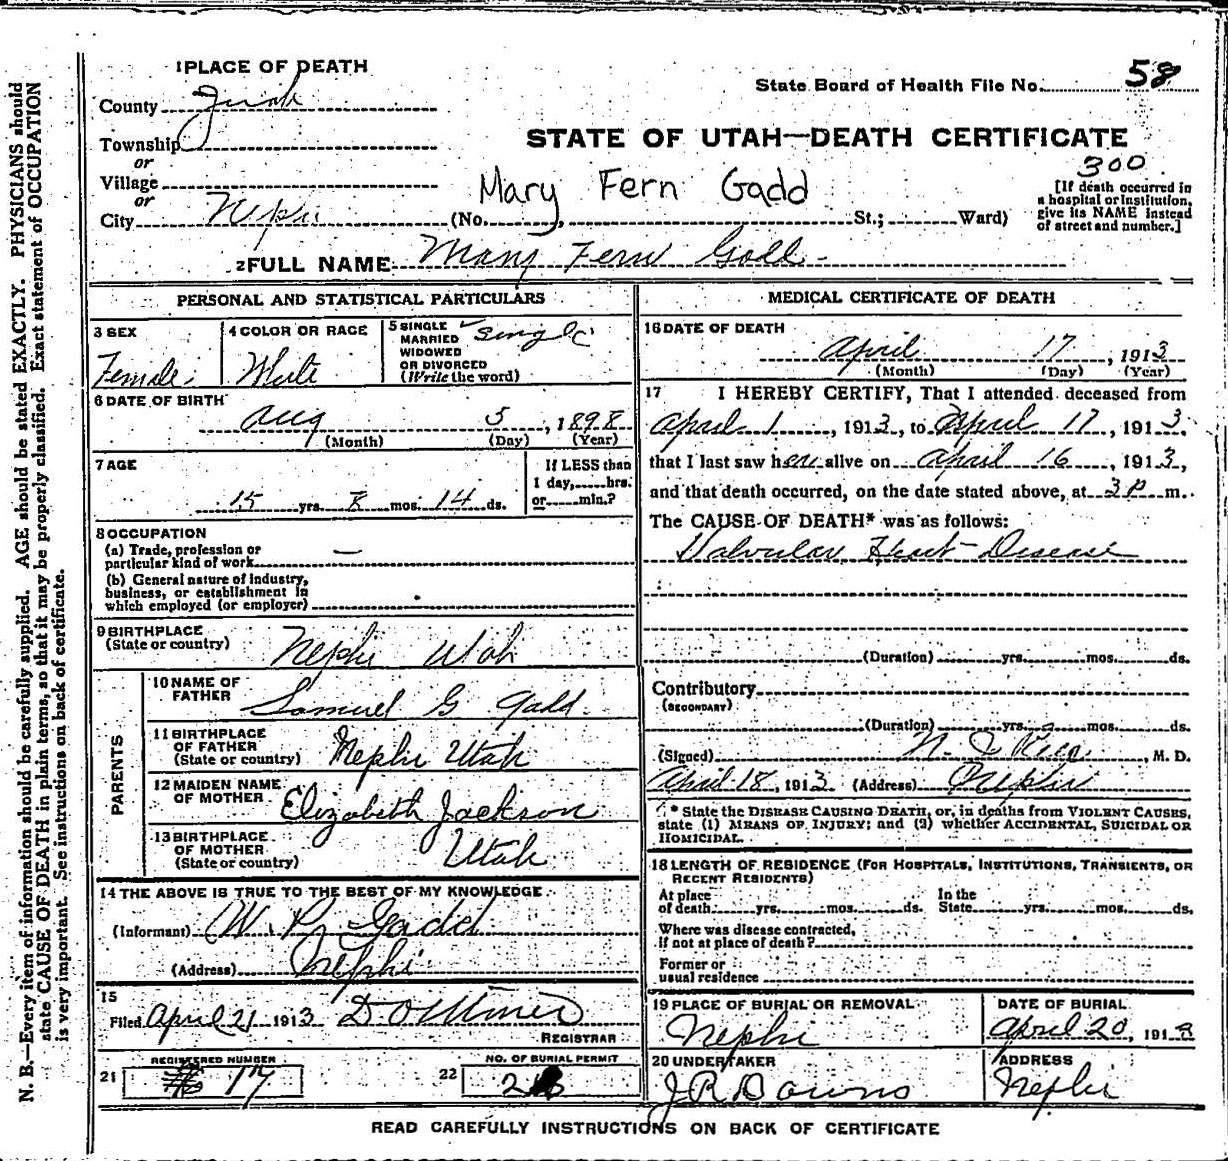 1 PLACE OF DEATH
County Juab
State Board of Health File No. 58
Township
or
Village
or
City Nephi
STATE OF UTAH—DEATH CERTIFICATE
300
Mary Fern Gadd
(No. , St.; Ward)
[If death occurred in
a hospital or institution,
give its NAME instead
of street and number.]
2 FULL NAME Mary Fern Gadd
PERSONAL AND STATISTICAL PARTICULARS
3 SEX
Female
4 COLOR OR RACE
White
5 SINGLE
MARRIED
WIDOWED
OR DIVORCED
(Write the word)
Single
6 DATE OF BIRTH
Aug 5, 1898
(Month) (Day) (Year)
7 AGE
15 yrs. 8 mos. 14 ds.
If LESS than
1 day, hrs.
or min.?
8 OCCUPATION
(a) Trade, profession or
particular kind of work —
(b) General nature of industry,
business, or establishment in
which employed (or employer)
9 BIRTHPLACE
(State or country)
Nephi Utah
PARENTS
10 NAME OF
FATHER
Samuel G Gadd
11 BIRTHPLACE
OF FATHER
(State or country)
Nephi Utah
12 MAIDEN NAME
OF MOTHER
Elizabeth Jackson
13 BIRTHPLACE
OF MOTHER
(State or country)
Utah
14 THE ABOVE IS TRUE TO THE BEST OF MY KNOWLEDGE
(Informant) W. R. Gadd
(Address) Nephi
15
Filed April 21 1913
REGISTRAR
21 REGISTERED NUMBER
17
22 NO. OF BURIAL PERMIT
MEDICAL CERTIFICATE OF DEATH
16 DATE OF DEATH
April 17, 1913
(Month) (Day) (Year)
17 I HEREBY CERTIFY, That I attended deceased from
April 1, 1913, to April 17, 1913,
that I last saw her alive on April 16, 1913,
and that death occurred, on the date stated above, at 3 P m.
The CAUSE OF DEATH* was as follows:
Valvular Heart Disease
(Duration) yrs. mos. ds.
Contributory
(SECONDARY)
(Duration) yrs. mos. ds.
(Signed) , M. D.
April 18, 1913 (Address) Nephi
* State the DISEASE CAUSING DEATH, or, in deaths from VIOLENT CAUSES,
state (1) MEANS OF INJURY; and (2) whether ACCIDENTAL, SUICIDAL OR
HOMICIDAL.
18 LENGTH OF RESIDENCE (FOR HOSPITALS, INSTITUTIONS, TRANSIENTS, OR
RECENT RESIDENTS)
At place
of death yrs. mos. ds.
In the
State yrs. mos. ds.
Where was disease contracted,
if not at place of death?
Former or
usual residence
19 PLACE OF BURIAL OR REMOVAL
Nephi
DATE OF BURIAL
April 20, 1913
20 UNDERTAKER
J R Downs
ADDRESS
Nephi
READ CAREFULLY INSTRUCTIONS ON BACK OF CERTIFICATE
N. B.—Every item of information should be carefully supplied. AGE should be stated EXACTLY. PHYSICIANS should
state CAUSE OF DEATH in plain terms, so that it may be properly classified. Exact statement of OCCUPATION
is very important. See instructions on back of certificate.